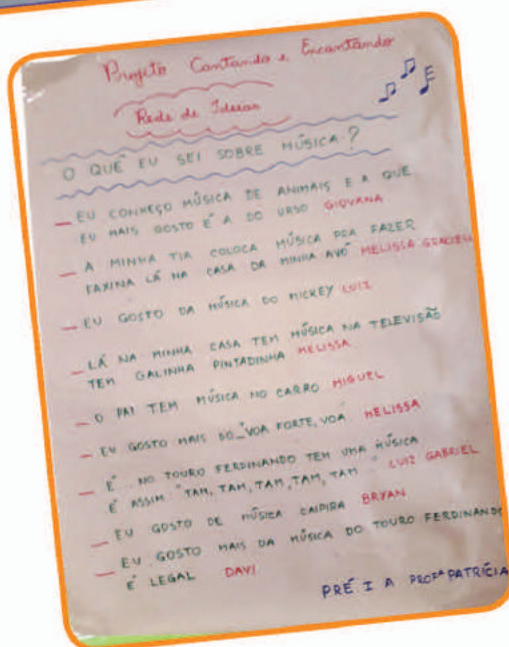 Projeto Cantando e Encantando
Rede de Ideias
O QUE EU SEI SOBRE MÚSICA?
— EU CONHEÇO MÚSICA DE ANIMAIS E A QUE
EU MAIS GOSTO É A DO URSO GIOVANA
— A MINHA TIA COLOCA MÚSICA PRA FAZER
FAXINA LÁ NA CASA DA MINHA AVÓ MELISSA GRACIELI
— EU GOSTO DA MÚSICA DO MICKEY LUIZ
— LÁ NA MINHA CASA TEM MÚSICA NA TELEVISÃO
TEM GALINHA PINTADINHA MELISSA
— O PAI TEM MÚSICA NO CARRO MIGUEL
— EU GOSTO MAIS DO "VOA FORTE, VOA MELISSA
— É... NO TOURO FERDINANDO TEM UMA MÚSICA
É ASSIM "TAM, TAM, TAM, TAM, TAM" LUIZ GABRIEL
— EU GOSTO DE MÚSICA CAIPIRA BRYAN
— EU GOSTO MAIS DA MÚSICA DO TOURO FERDINANDO
É LEGAL DAVI
PRÉ I A PROFª PATRÍCIA